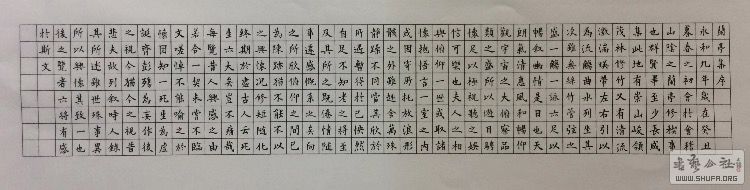 蘭亭集序
永和九年歲在癸丑
暮春之初會於會稽
山陰之蘭亭修禊事
也群賢畢至少長咸
集此地有崇山峻領
茂林修竹又有清流
激湍映帶左右引以
為流觴曲水列坐其
次雖無絲竹管弦之
盛一觴一詠亦足以
暢敘幽情是日也天
朗氣清惠風和暢仰
觀宇宙之大俯察品
類之盛所以遊目騁
懷足以極視聽之娛
信可樂也夫人之相
與俯仰一世或取諸
懷抱悟言一室之內
或因寄所託放浪形
骸之外雖趣舍萬殊
靜躁不同當其欣於
所遇暫得於己快然
自足不知老之將至
及其所之既倦情隨
事遷感慨係之矣向
之所欣俯仰之間已
為陳跡猶不能不以
之興懷況修短隨化
終期於盡古人云死
生亦大矣豈不痛哉
每覽昔人興感之由
若合一契未嘗不臨
文嗟悼不能喻之於
懷固知一死生為虛
誕齊彭殤為妄作後
之視今由今之視昔
悲夫故列敘時人錄
其所述雖世殊事異
所以興懷其致一也
後之覽者亦將有感
於斯文
书艺公社
WWW.SHUFA.ORG